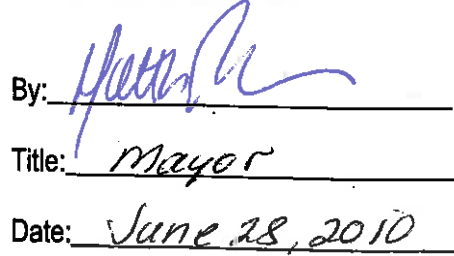 By:
Title: Mayor
Date: June 28, 2010